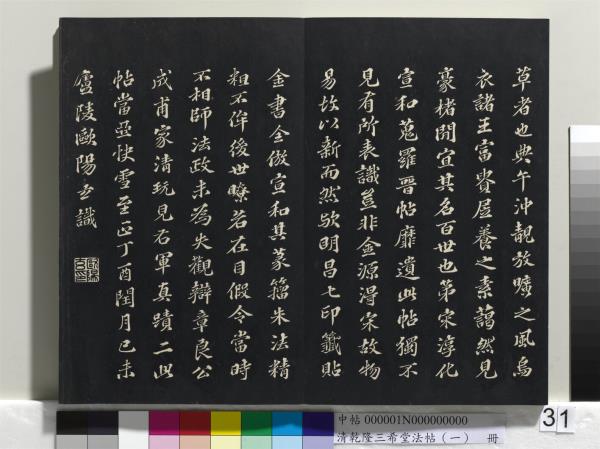 草者也典午沖靚放曠之風烏
衣諸王富貴屋養之素藹然見
豪楮間宜其名百世也第宋淳化
宣和蒐羅晉帖靡遺此帖獨不
見有所表識豈非金源得宋故物
易故以新而然歟明昌七印籤貼
金書全倣宣和其篆籀朱法精
粗不侔後世瞭若在目假令當時
不相師法政未為失觀辯章良公
成甫家清玩見右軍真蹟二此
帖當亞快雪至正丁酉閏月己未
廬陵歐陽玄識
中帖 000001N000000000
清乾隆三希堂法帖（一） 冊
31